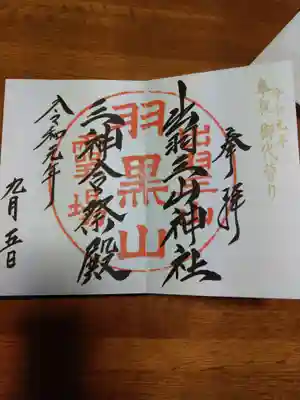 令和元年
奉祝 御代替り
奉拝
出羽三山神社
羽黒山
三神合祭殿
霊場
令和元年
九月五日